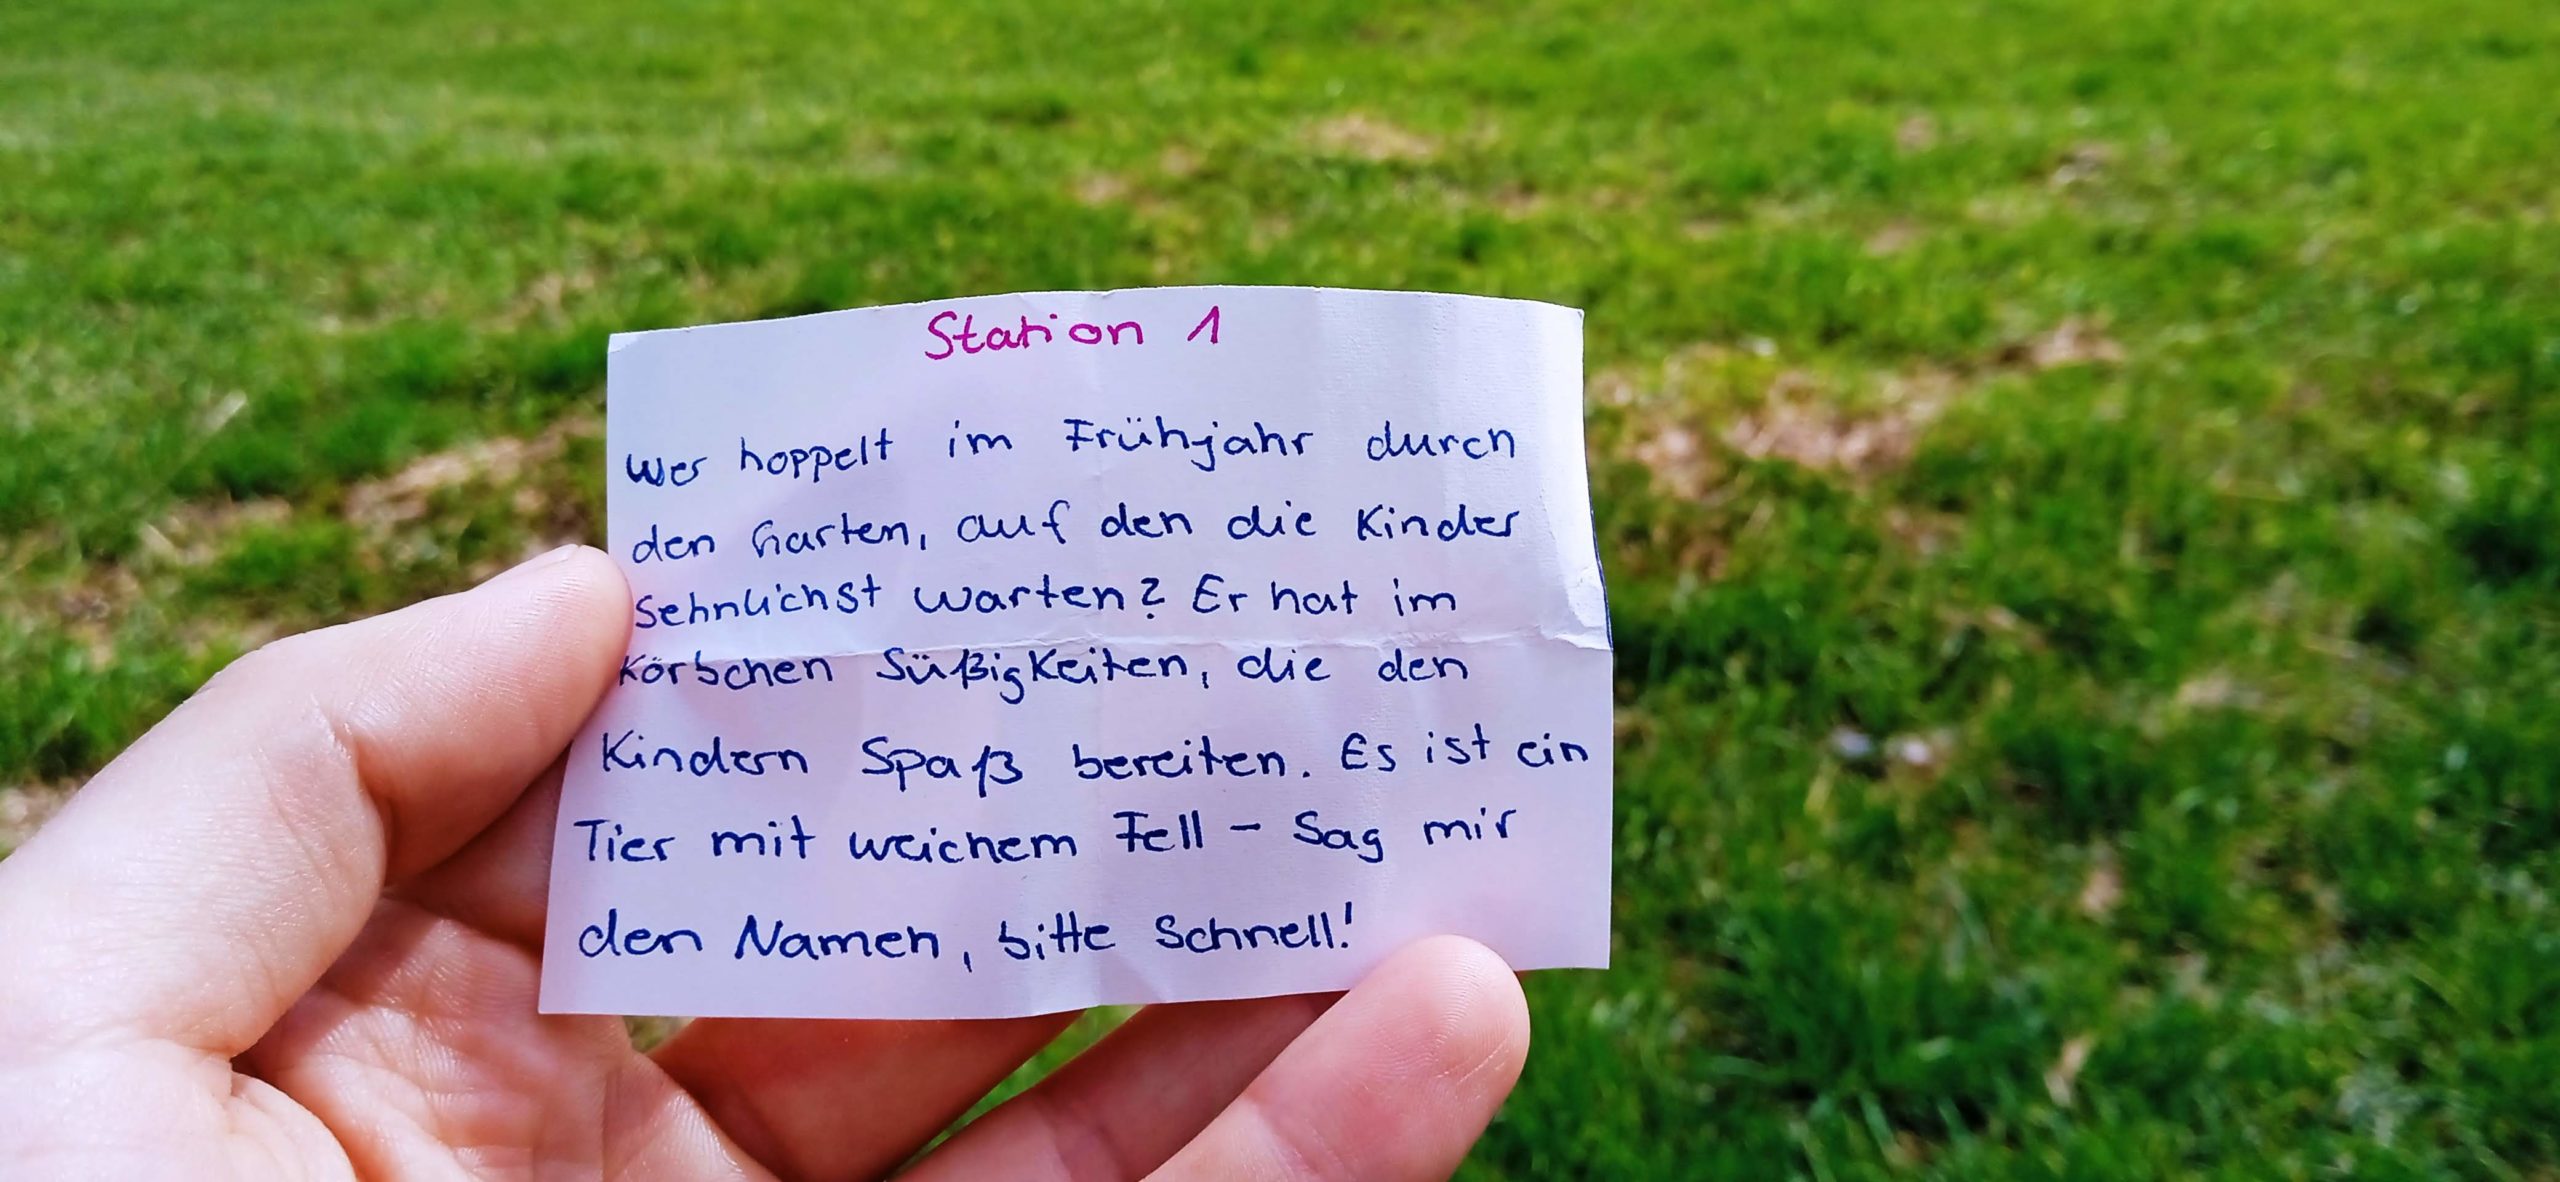 Station 1
Wer hoppelt im Frühjahr durch
den Garten, auf den die Kinder
sehnlichst warten? Er hat im
Körbchen Süßigkeiten, die den
Kindern Spaß bereiten. Es ist ein
Tier mit weichem Fell - Sag mir
den Namen, bitte schnell!